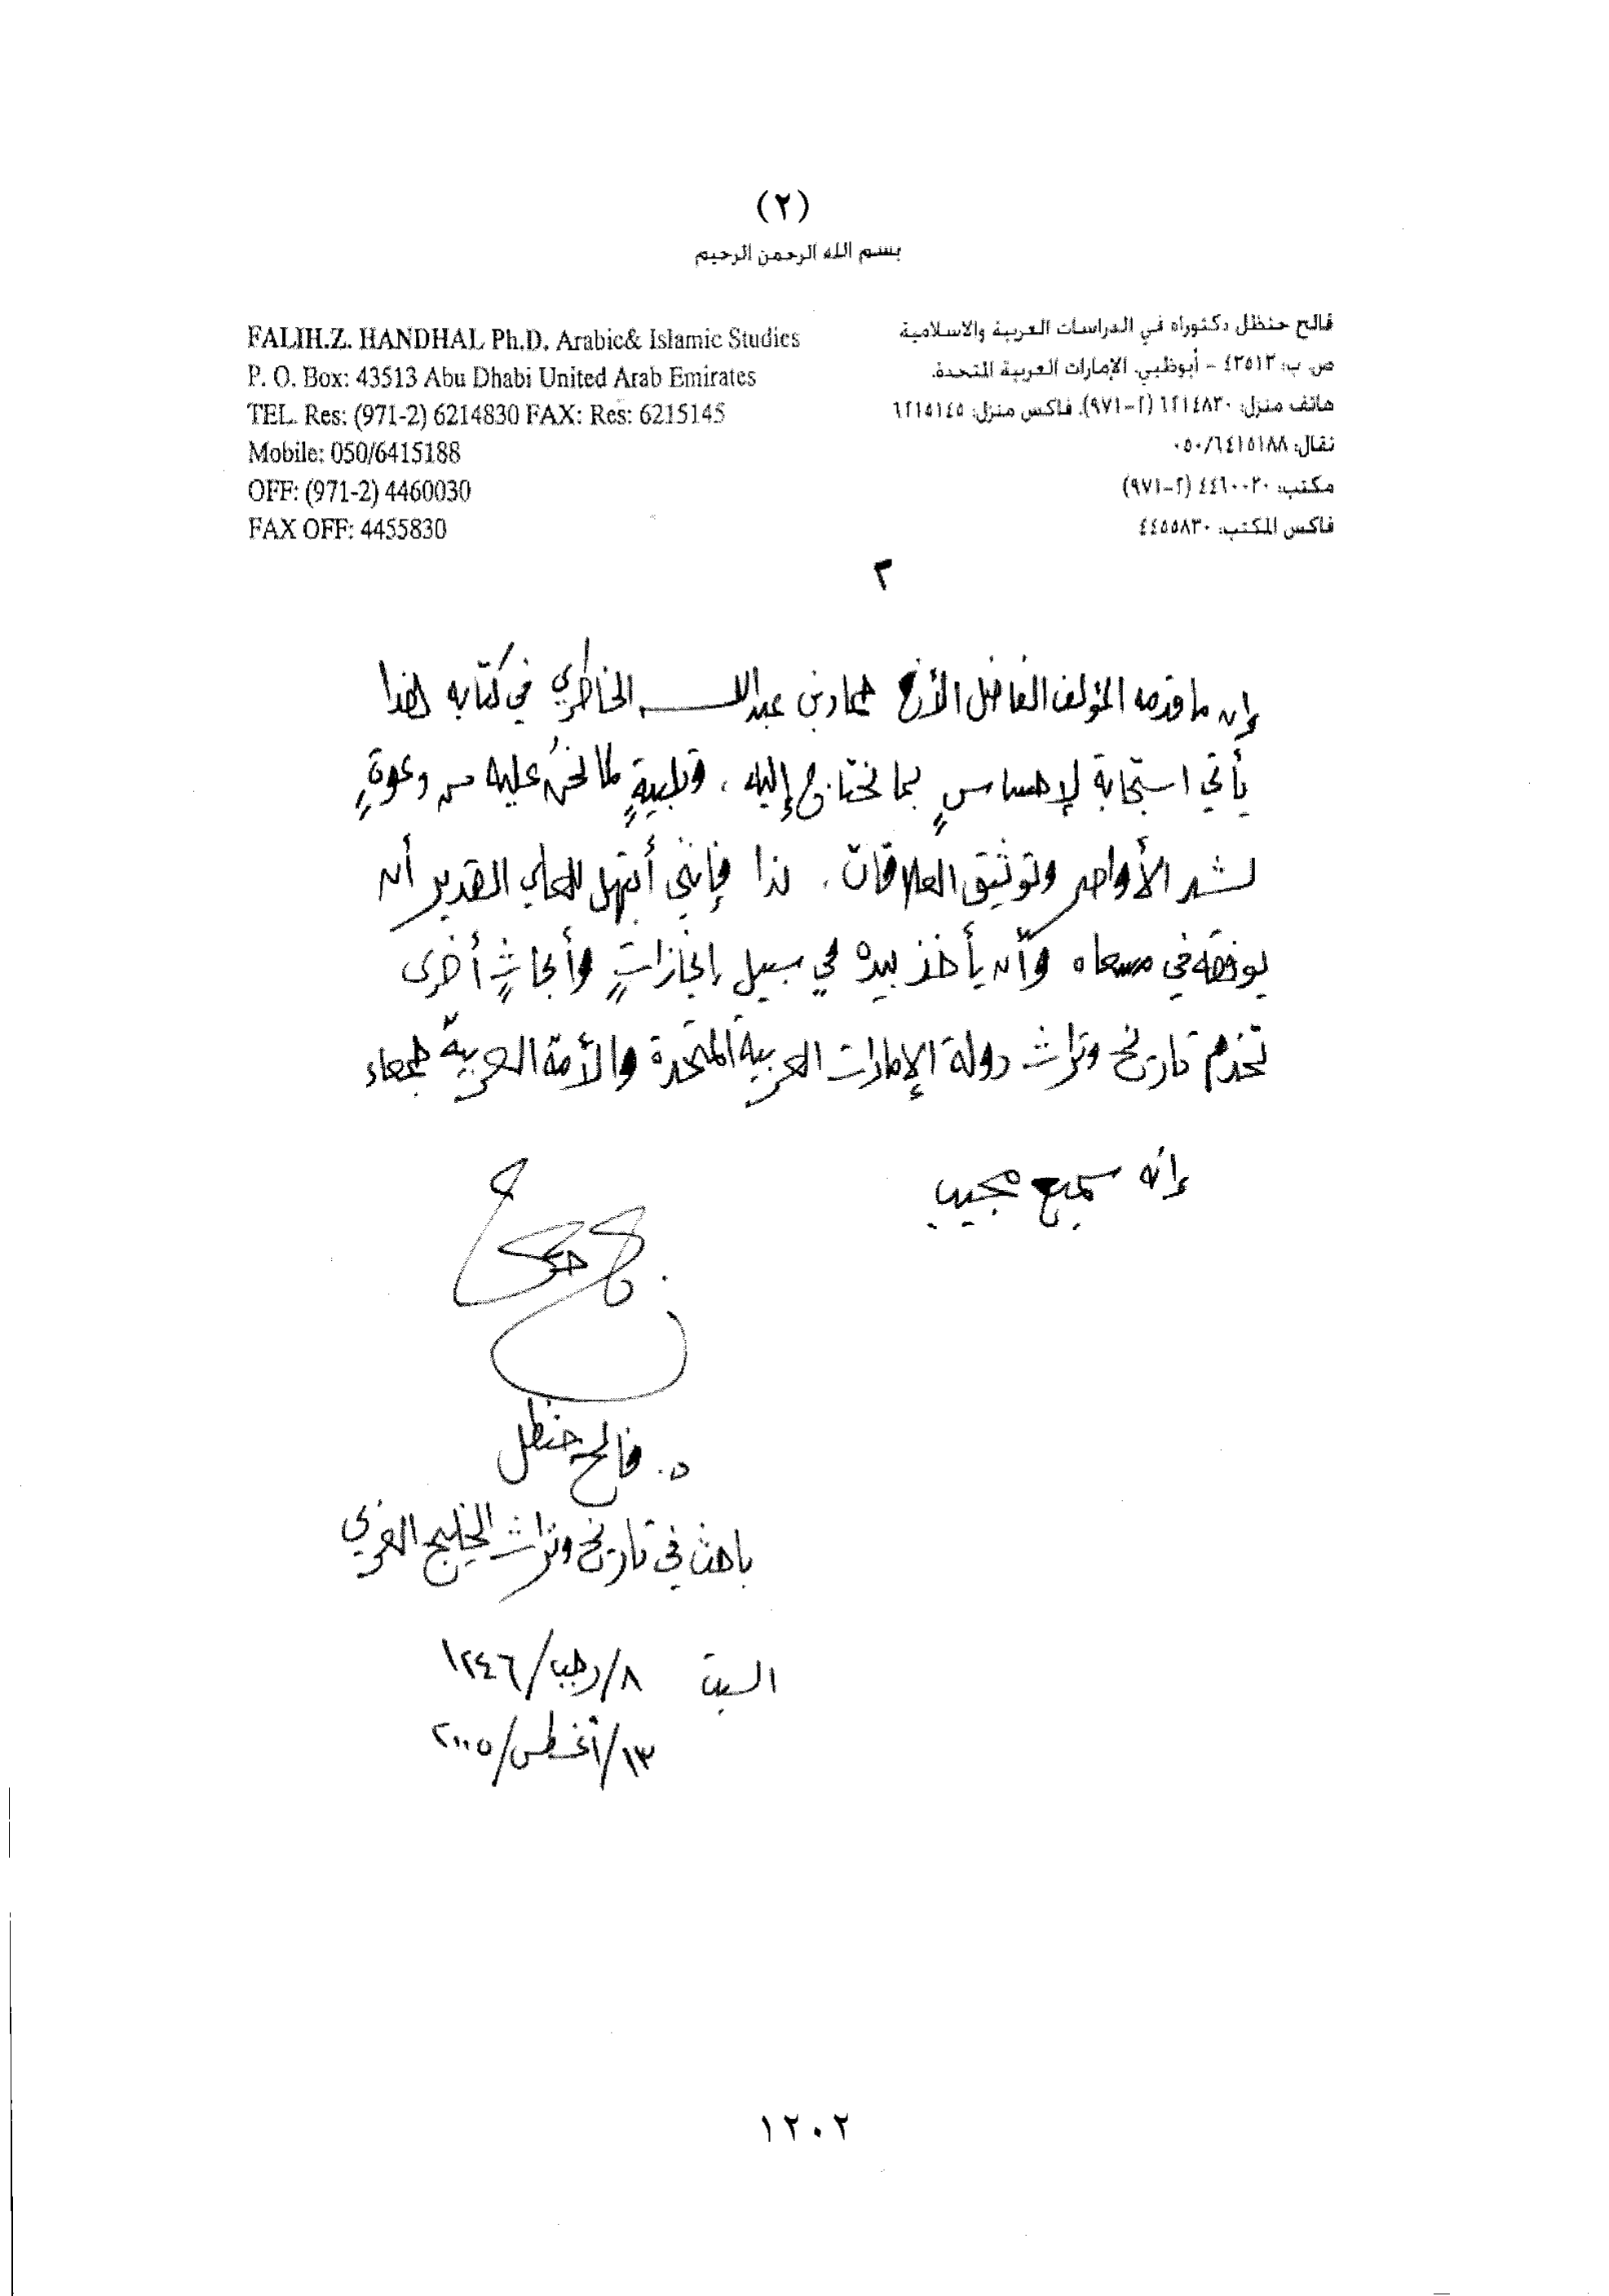 (٢)
بسم الله الرحمن الرحيم
FALIH.Z. HANDHAL Ph.D. Arabic& Islamic Studies
P. O. Box: 43513 Abu Dhabi United Arab Emirates
TEL. Res: (971-2) 6214830 FAX: Res: 6215145
Mobile: 050/6415188
OFF: (971-2) 4460030
FAX OFF: 4455830
فالح حنظل دكتوراه في الدراسات العربية والاسلامية
ص. ب: ٤٣٥١٣ - أبوظبي. الإمارات العربية المتحدة.
هاتف منزل: ٦٢١٤٨٣٠ (٢-٩٧١). فاكس منزل: ٦٢١٥١٤٥
نقال: ٠٥٠/٦٤١٥١٨٨
مكتب: ٤٤٦٠٠٣٠ (٢-٩٧١)
فاكس المكتب: ٤٤٥٥٨٣٠
٢
إن ما قدمه المؤلف الفاضل الأخ حماد بن عبدالله الخاطري في كتابه هذا
يأتي استجابة لإحساسٍ بما نحتاج إليه، وتلبيةٍ لما نحنُ عليه من دعوةٍ
لشد الأواصر وتوثيق العلاقات. لذا فإنني أبتهل للعلي القدير أن
يوفقه في مسعاه وأن يأخذ بيده في سبيل إنجازاتٍ وأبحاثٍ أخرى
تخدم تاريخ وتراث دولة الإمارات العربية المتحدة والأمة العربية جمعاء
إنه سميع مجيب
د. فالح حنظل
باحث في تاريخ وتراث الخليج العربي
السبت ٨/رجب/١٢٤٦
١٣/أغسطس/٢٠٠٥
١٢٠٢